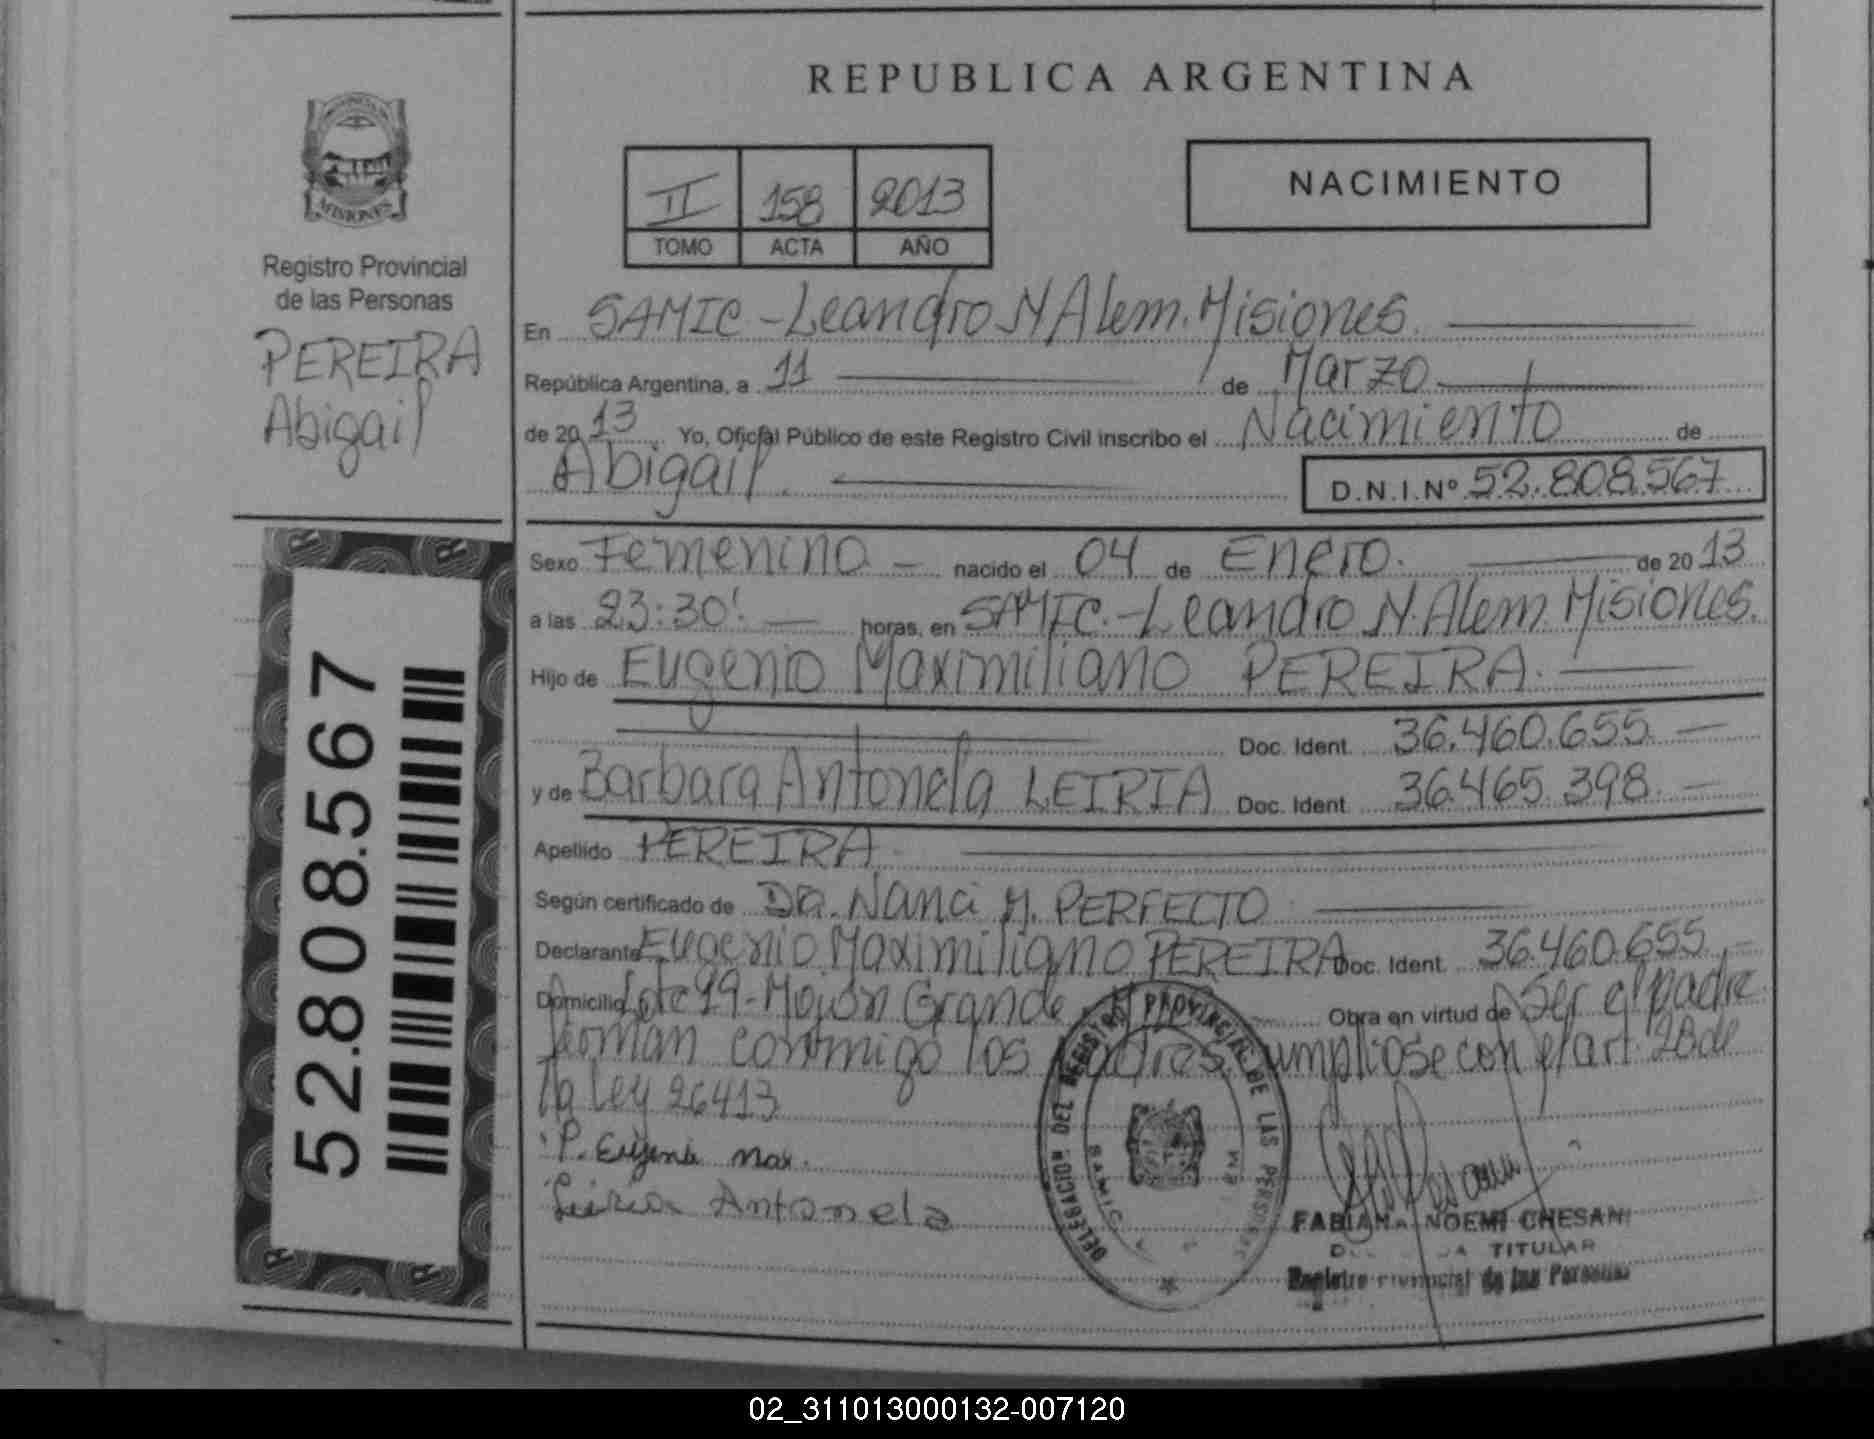 REPUBLICA ARGENTINA
PROVINCIA DE
MISIONES
Registro Provincial
de las Personas
PEREIRA
Abigail
II 158 2013
TOMO ACTA AÑO
NACIMIENTO
En SAMIC - Leandro N Alem. Misiones.
República Argentina, a 11 de Marzo
de 2013 Yo, Oficial Público de este Registro Civil inscribo el Nacimiento de
Abigail. D.N.I.Nº 52.808.567
Sexo Femenino - nacido el 04 de Enero. de 2013
a las 23:30' horas, en SAMIC.-Leandro N. Alem. Misiones.
Hijo de Eugenio Maximiliano PEREIRA.
Doc. Ident. 36.460.655.-
y de Barbara Antonela LEIRIA Doc. Ident. 36.465.398.-
Apellido PEREIRA
Según certificado de Dra. Nanci M. PERFECTO
Declarante Eugenio Maximiliano PEREIRA Doc. Ident. 36.460.655.-
Domicilio Lote 99-Mojón Grande Obra en virtud de Ser el padre
firman conmigo los Padres, cumpliose con el art. 28 de
la Ley 26413
P. Eugenio Max.
Leiria Antonela
DELEGACION DEL REGISTRO PROVINCIAL DE LAS PERSONAS
SAMIC
FABIANA NOEMI CHESANI
TITULAR
Registro Provincial de las Personas
52.808.567
02_311013000132-007120